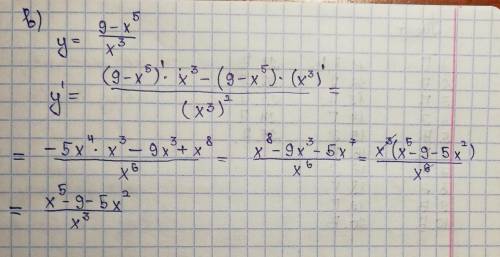 в)
y = (9-x⁵)/x³
y' = ((9-x⁵)' · x³ - (9-x⁵) · (x³)')/(x³)² =
= (-5x⁴ · x³ - 9x³ + x⁸)/x⁶ = (x⁸ - 9x³ - 5x⁷)/x⁶ = x³(x⁵ - 9 - 5x²)/x⁶
= (x⁵ - 9 - 5x²)/x³